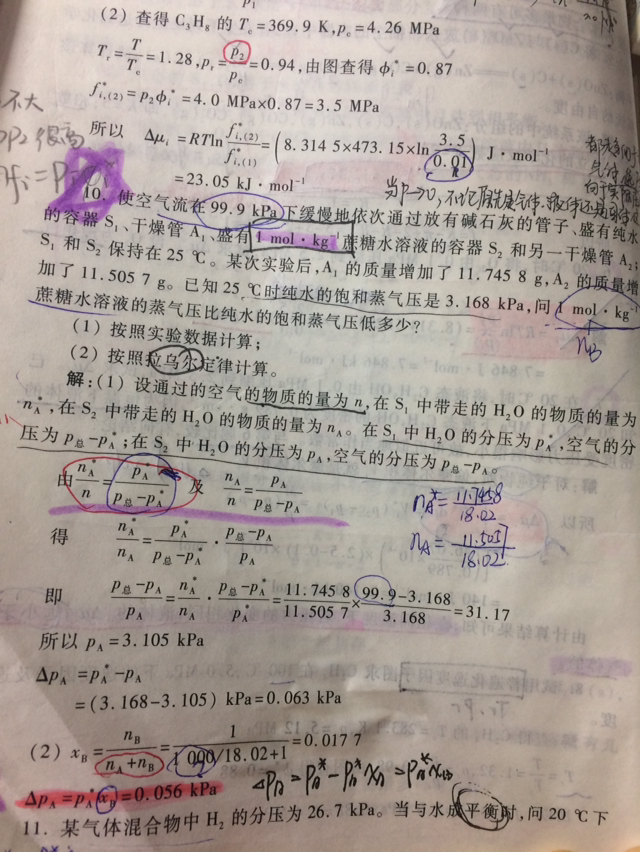 (2) 查得 C₃H₈ 的 T_c=369.9 K, p_c=4.26 MPa
T_r=T/T_c=1.28, p_r=p₂/p_c=0.94, 由图查得 φ_i*=0.87
f*_{i,(2)}=p₂φ_i*=4.0 MPa×0.87=3.5 MPa
不大
所以 Δμ_i=RTln(f*_{i,(2)}/f*_{i,(1)})=(8.314 5×473.15×ln(3.5/0.01)) J·mol⁻¹
=23.05 kJ·mol⁻¹
10. 使空气流在 99.9 kPa 下缓慢地依次通过放有碱石灰的管子、盛有纯水
的容器 S₁、干燥管 A₁、盛有 1 mol·kg⁻¹ 蔗糖水溶液的容器 S₂ 和另一干燥管 A₂;
S₁ 和 S₂ 保持在 25 ℃。某次实验后, A₁ 的质量增加了 11.745 8 g, A₂ 的质量增
加了 11.505 7 g。已知 25 ℃时纯水的饱和蒸气压是 3.168 kPa, 问 1 mol·kg⁻¹
蔗糖水溶液的蒸气压比纯水的饱和蒸气压低多少?
n_B
(1) 按照实验数据计算;
(2) 按照拉乌尔定律计算。
解: (1) 设通过的空气的物质的量为 n, 在 S₁ 中带走的 H₂O 的物质的量为
n_A*, 在 S₂ 中带走的 H₂O 的物质的量为 n_A。在 S₁ 中 H₂O 的分压为 p_A*, 空气的分
压为 p总−p_A*; 在 S₂ 中 H₂O 的分压为 p_A, 空气的分压为 p总−p_A。
由 n_A*/n=p_A*/(p总−p_A*) 及 n_A/n=p_A/(p总−p_A)
n_A*=11.7458/18.02
n_A=11.5057/18.02
得 n_A*/n_A=p_A*/(p总−p_A*)·(p总−p_A)/p_A
即 (p总−p_A)/p_A=n_A*/n_A·(p总−p_A*)/p_A*=11.745 8/11.505 7×(99.9−3.168)/3.168=31.17
所以 p_A=3.105 kPa
Δp_A=p_A*−p_A
=(3.168−3.105) kPa=0.063 kPa
(2) x_B=n_B/(n_A+n_B)=1/(1 000/18.02+1)=0.017 7
Δp_A=p_A*−p_A*x_A=p_A*x_B
Δp_A=p_A*x_B=0.056 kPa
11. 某气体混合物中 H₂ 的分压为 26.7 kPa。当与水成平衡时, 问 20 ℃下